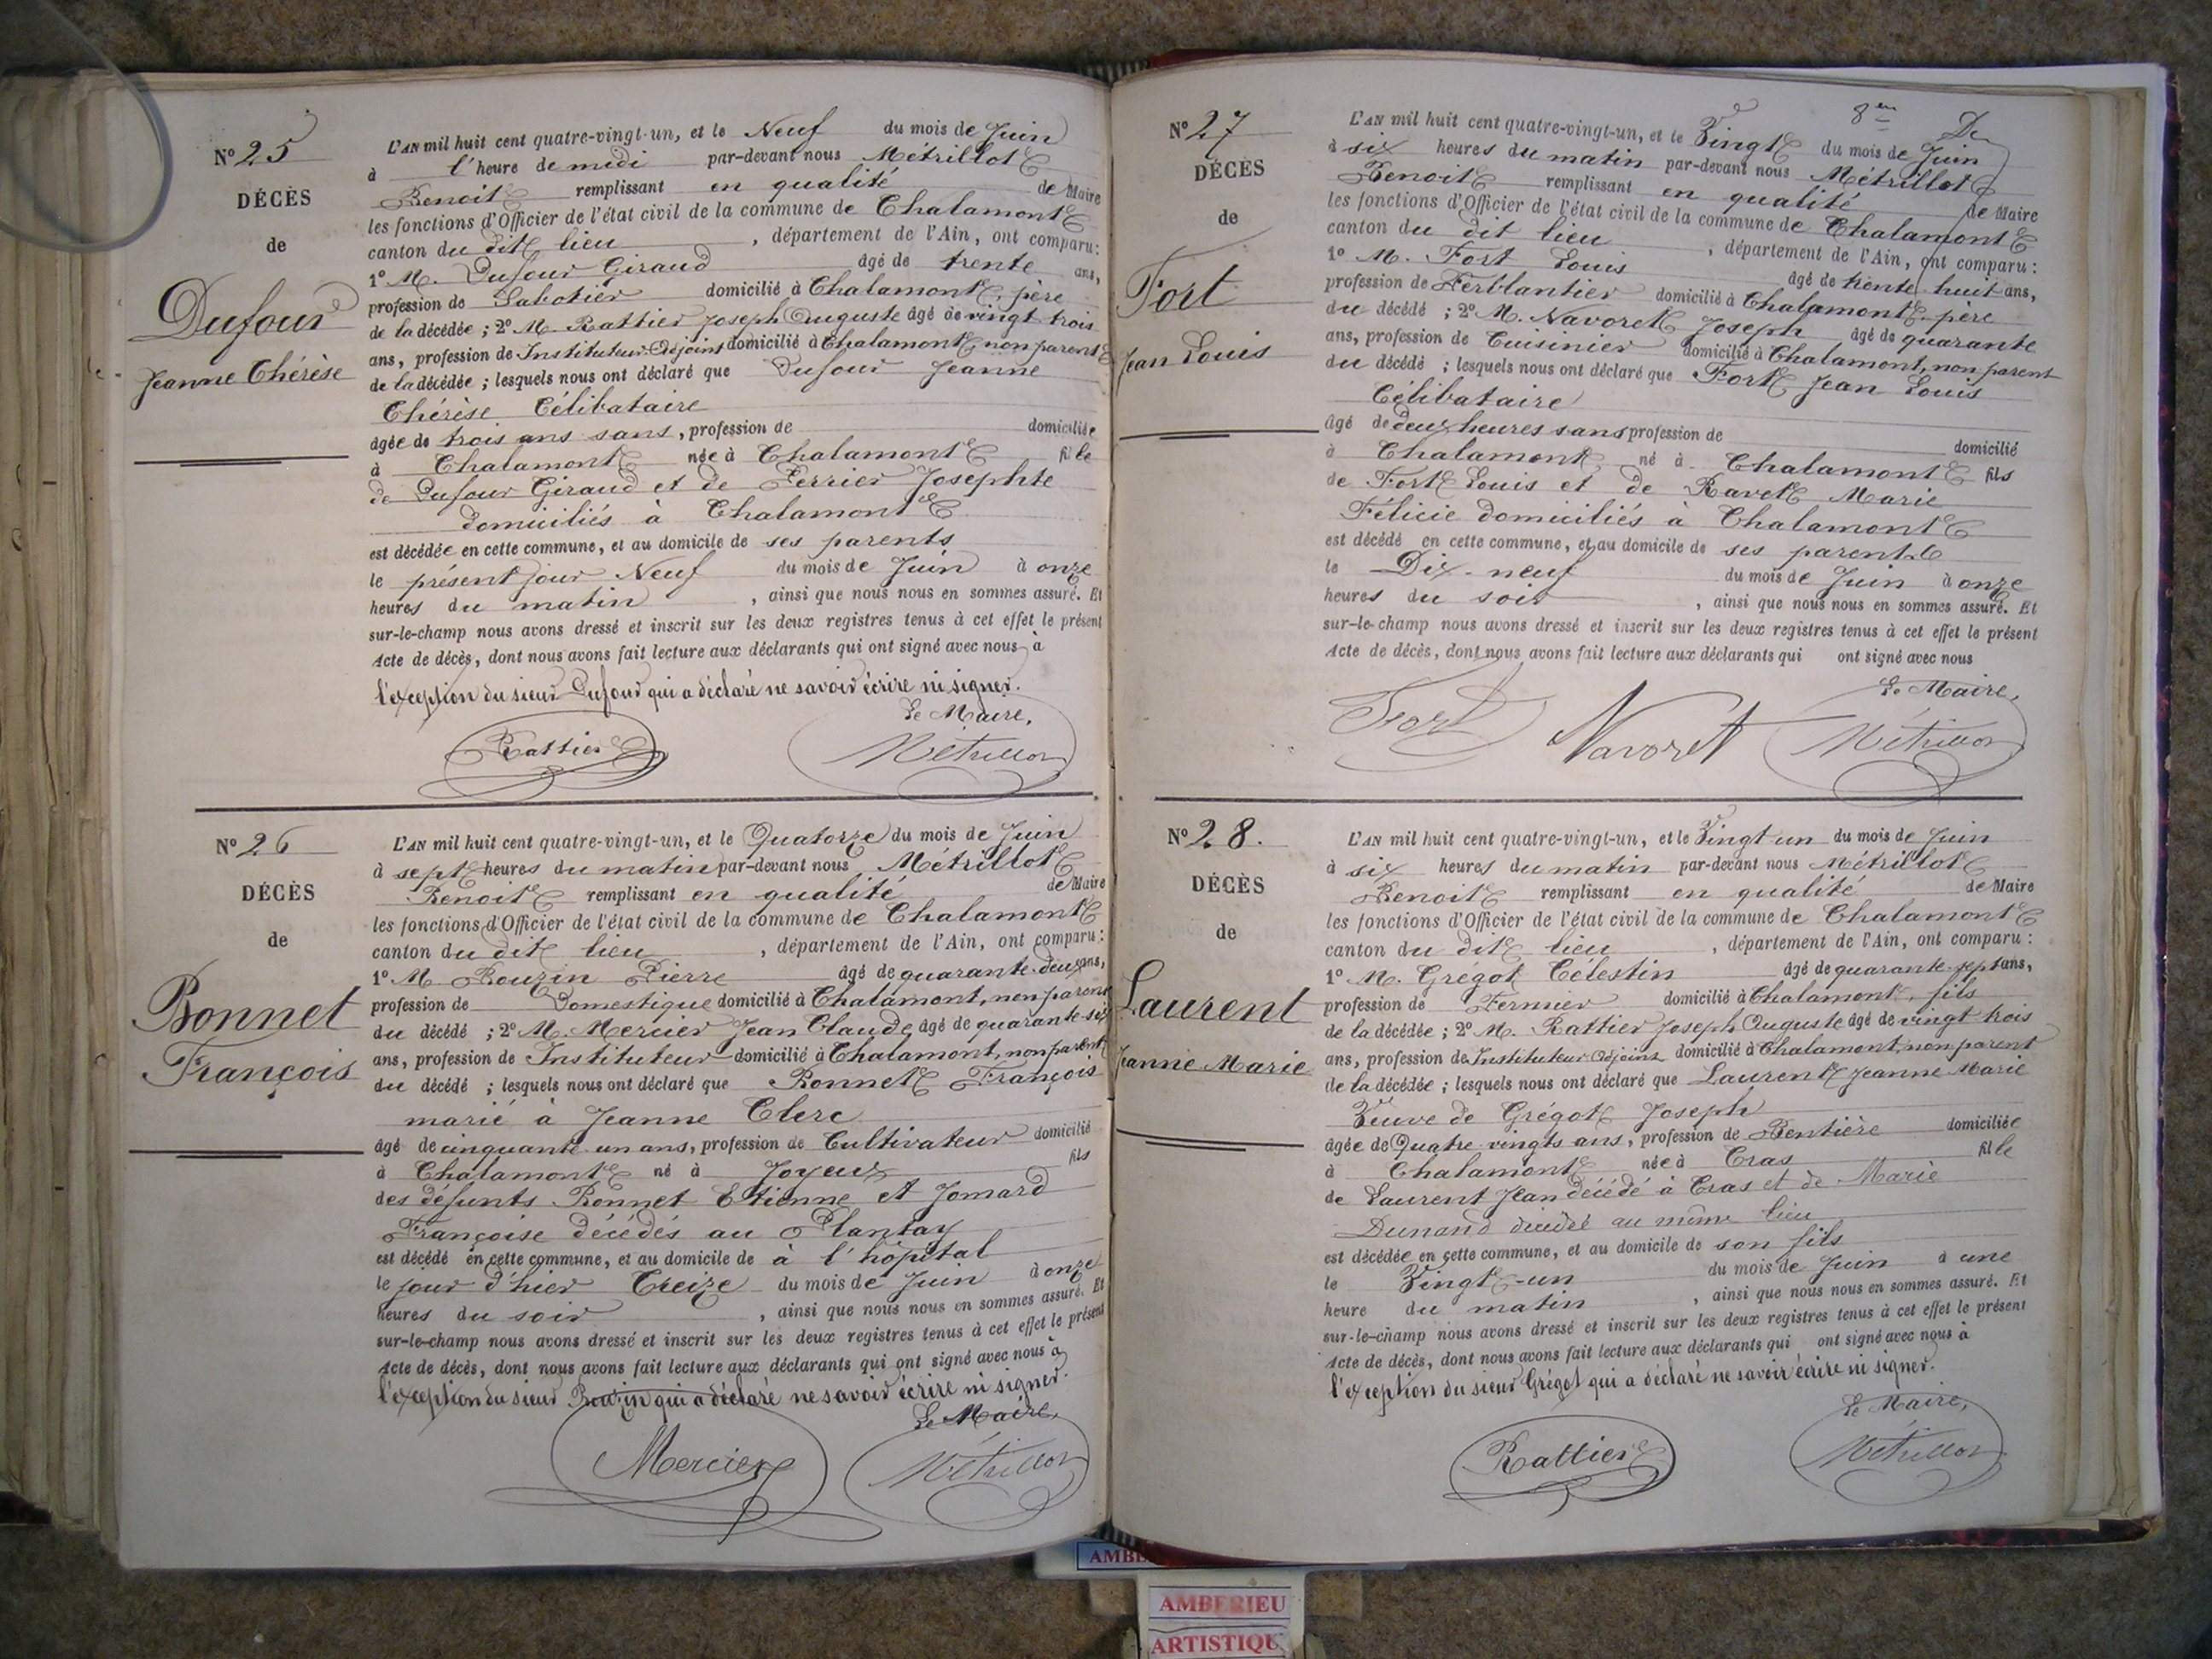 N° 25
DÉCÈS
de
Dufour
Jeanne Thérèse
L'AN mil huit cent quatre-vingt-un, et le Neuf du mois de Juin
à l'heure de midi par-devant nous Métrillot
Benoit remplissant en qualité de Maire
les fonctions d'Officier de l'état civil de la commune de Chalamont
canton du dit lieu, département de l'Ain, ont comparu:
1° M. Dufour Giraud âgé de trente ans,
profession de Sabotier domicilié à Chalamont, père
de la décédée; 2° M. Rattier Joseph Auguste âgé de vingt trois
ans, profession de Instituteur Adjoint domicilié à Chalamont, non parent
de la décédée; lesquels nous ont déclaré que Dufour Jeanne
Thérèse Célibataire
âgée de trois ans sans, profession de domiciliée
à Chalamont née à Chalamont fille
de Dufour Giraud et de Ferrier Josephte
domiciliés à Chalamont
est décédée en cette commune, et au domicile de ses parents
le présent jour Neuf du mois de Juin à onze
heures du matin, ainsi que nous nous en sommes assuré. Et
sur-le-champ nous avons dressé et inscrit sur les deux registres tenus à cet effet le présent
Acte de décès, dont nous avons fait lecture aux déclarants qui ont signé avec nous à
l'exception du sieur Dufour qui a déclaré ne savoir écrire ni signer.
Le Maire,
Rattier Métrillot
N° 26
DÉCÈS
de
Bonnet
François
L'AN mil huit cent quatre-vingt-un, et le Quatorze du mois de Juin
à sept heures du matin par-devant nous Métrillot
Benoit remplissant en qualité de Maire
les fonctions d'Officier de l'état civil de la commune de Chalamont
canton du dit lieu, département de l'Ain, ont comparu:
1° M. Bouzin Pierre âgé de quarante-deux ans,
profession de Domestique domicilié à Chalamont, non parent
du décédé; 2° M. Mercier Jean Claude, âgé de quarante-six
ans, profession de Instituteur domicilié à Chalamont, non parent
du décédé; lesquels nous ont déclaré que Bonnet François
marié à Jeanne Clerc
âgé de cinquante un ans, profession de Cultivateur domicilié
à Chalamont né à Joyeux fils
des défunts Bonnet Etienne et Jomard
Françoise décédés au Plantay
est décédé en cette commune, et au domicile de à l'hôpital
le jour d'hier Treize du mois de Juin à onze
heures du soir, ainsi que nous nous en sommes assuré. Et
sur-le-champ nous avons dressé et inscrit sur les deux registres tenus à cet effet le présent
Acte de décès, dont nous avons fait lecture aux déclarants qui ont signé avec nous à
l'exception du sieur Bouzin qui a déclaré ne savoir écrire ni signer.
Le Maire,
Mercier Métrillot
8en De
N° 27
DÉCÈS
de
Fort
Jean Louis
L'AN mil huit cent quatre-vingt-un, et le Vingt du mois de Juin
à six heures du matin par-devant nous Métrillot
Benoit remplissant en qualité de Maire
les fonctions d'Officier de l'état civil de la commune de Chalamont
canton du dit lieu, département de l'Ain, ont comparu:
1° M. Fort Louis âgé de trente huit ans,
profession de Ferblantier domicilié à Chalamont, père
du décédé; 2° M. Navoret Joseph âgé de quarante
ans, profession de Cuisinier domicilié à Chalamont, non parent
du décédé; lesquels nous ont déclaré que Fort Jean Louis
Célibataire
âgé de deux heures sans profession de domicilié
à Chalamont né à Chalamont fils
de Fort Louis et de Ravet Marie
Félicie domiciliés à Chalamont
est décédé en cette commune, et au domicile de ses parents
le Dix-neuf du mois de Juin à onze
heures du soir, ainsi que nous nous en sommes assuré. Et
sur-le-champ nous avons dressé et inscrit sur les deux registres tenus à cet effet le présent
Acte de décès, dont nous avons fait lecture aux déclarants qui ont signé avec nous
Le Maire,
Fort Navoret Métrillot
N° 28.
DÉCÈS
de
Laurent
Jeanne Marie
L'AN mil huit cent quatre-vingt-un, et le Vingt-un du mois de Juin
à six heures du matin par-devant nous Métrillot
Benoit remplissant en qualité de Maire
les fonctions d'Officier de l'état civil de la commune de Chalamont
canton du dit lieu, département de l'Ain, ont comparu:
1° M. Grégot Célestin âgé de quarante-sept ans,
profession de Fermier domicilié à Chalamont, fils
de la décédée; 2° M. Rattier Joseph Auguste âgé de vingt trois
ans, profession de Instituteur Adjoint domicilié à Chalamont, non parent
de la décédée; lesquels nous ont déclaré que Laurent Jeanne Marie
Veuve de Grégot Joseph
âgée de Quatre vingts ans, profession de Rentière domiciliée
à Chalamont née à Cras fille
de Laurent Jean décédé à Cras et de Marie
Dunand décédée au même lieu
est décédée en cette commune, et au domicile de son fils
le Vingt-un du mois de Juin à une
heure du matin, ainsi que nous nous en sommes assuré. Et
sur-le-champ nous avons dressé et inscrit sur les deux registres tenus à cet effet le présent
Acte de décès, dont nous avons fait lecture aux déclarants qui ont signé avec nous à
l'exception du sieur Grégot qui a déclaré ne savoir écrire ni signer.
Le Maire,
Rattier Métrillot
AMBE
AMBERIEU
ARTISTIQU